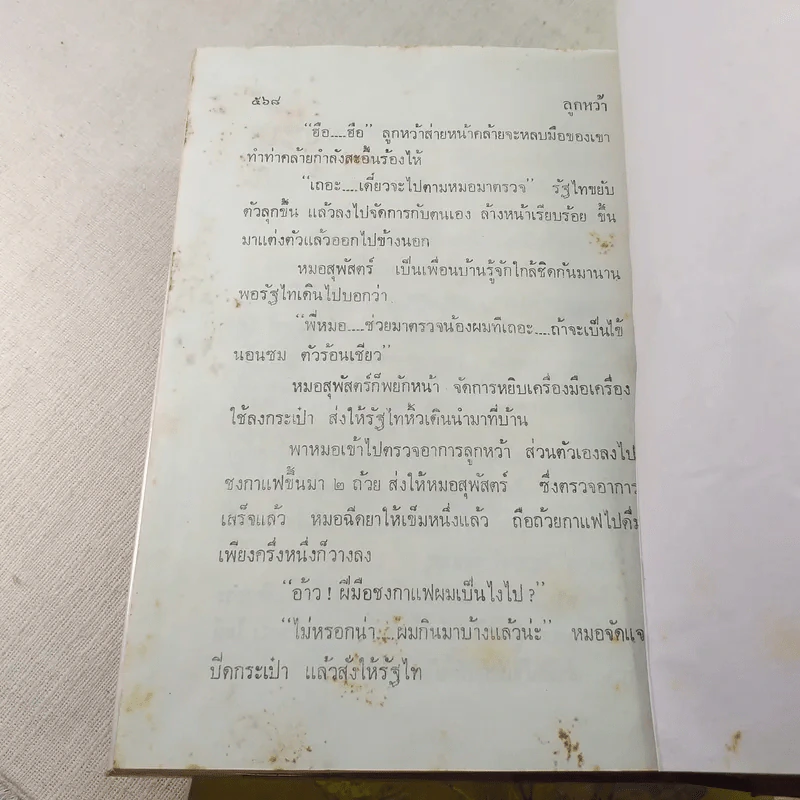 ๕๖๘ ลูกหว้า
“ฮือ....ฮือ” ลูกหว้าส่ายหน้าคล้ายจะหลบมือของเขา
ทำท่าคล้ายกำลังสะอื้นร้องไห้
“เถอะ....เดี๋ยวจะไปตามหมอมาตรวจ” รัฐไทขยับ
ตัวลุกขึ้น แล้วลงไปจัดการกับตนเอง ล้างหน้าเรียบร้อย ขึ้น
มาแต่งตัวแล้วออกไปข้างนอก
หมอสุพัสตร์ เป็นเพื่อนบ้านรู้จักใกล้ชิดกันมานาน
พอรัฐไทเดินไปบอกว่า
“พี่หมอ....ช่วยมาตรวจน้องผมทีเถอะ....ถ้าจะเป็นไข้
นอนซม ตัวร้อนเชียว”
หมอสุพัสตร์ก็พยักหน้า จัดการหยิบเครื่องมือเครื่อง
ใช้ลงกระเป๋า ส่งให้รัฐไทหิ้วเดินนำมาที่บ้าน
พาหมอเข้าไปตรวจอาการลูกหว้า ส่วนตัวเองลงไป
ชงกาแฟขึ้นมา ๒ ถ้วย ส่งให้หมอสุพัสตร์ ซึ่งตรวจอาการ
เสร็จแล้ว หมอฉีดยาให้เข็มหนึ่งแล้ว ถือถ้วยกาแฟไปดื่ม
เพียงครึ่งหนึ่งก็วางลง
“อ้าว ! ฝีมือชงกาแฟผมเป็นไงไป ?”
“ไม่หรอกน่า....ผมกินมาบ้างแล้วน่ะ” หมอจัดแจ
ปิดกระเป๋า แล้วสั่งให้รัฐไท